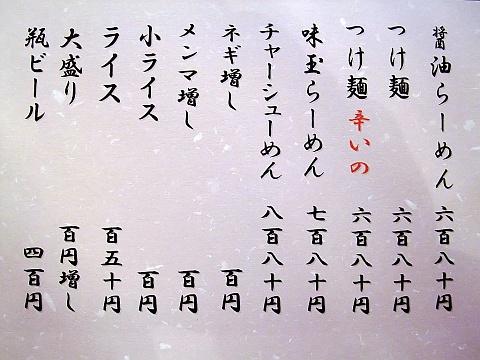 醤油らーめん 六百八十円
つけ麺 六百八十円
つけ麺 辛いの 六百八十円
味玉らーめん 七百八十円
チャーシューめん 八百八十円
ネギ増し 百円
メンマ増し 百円
小ライス 百円
ライス 百五十円
大盛り 百円増し
瓶ビール 四百円